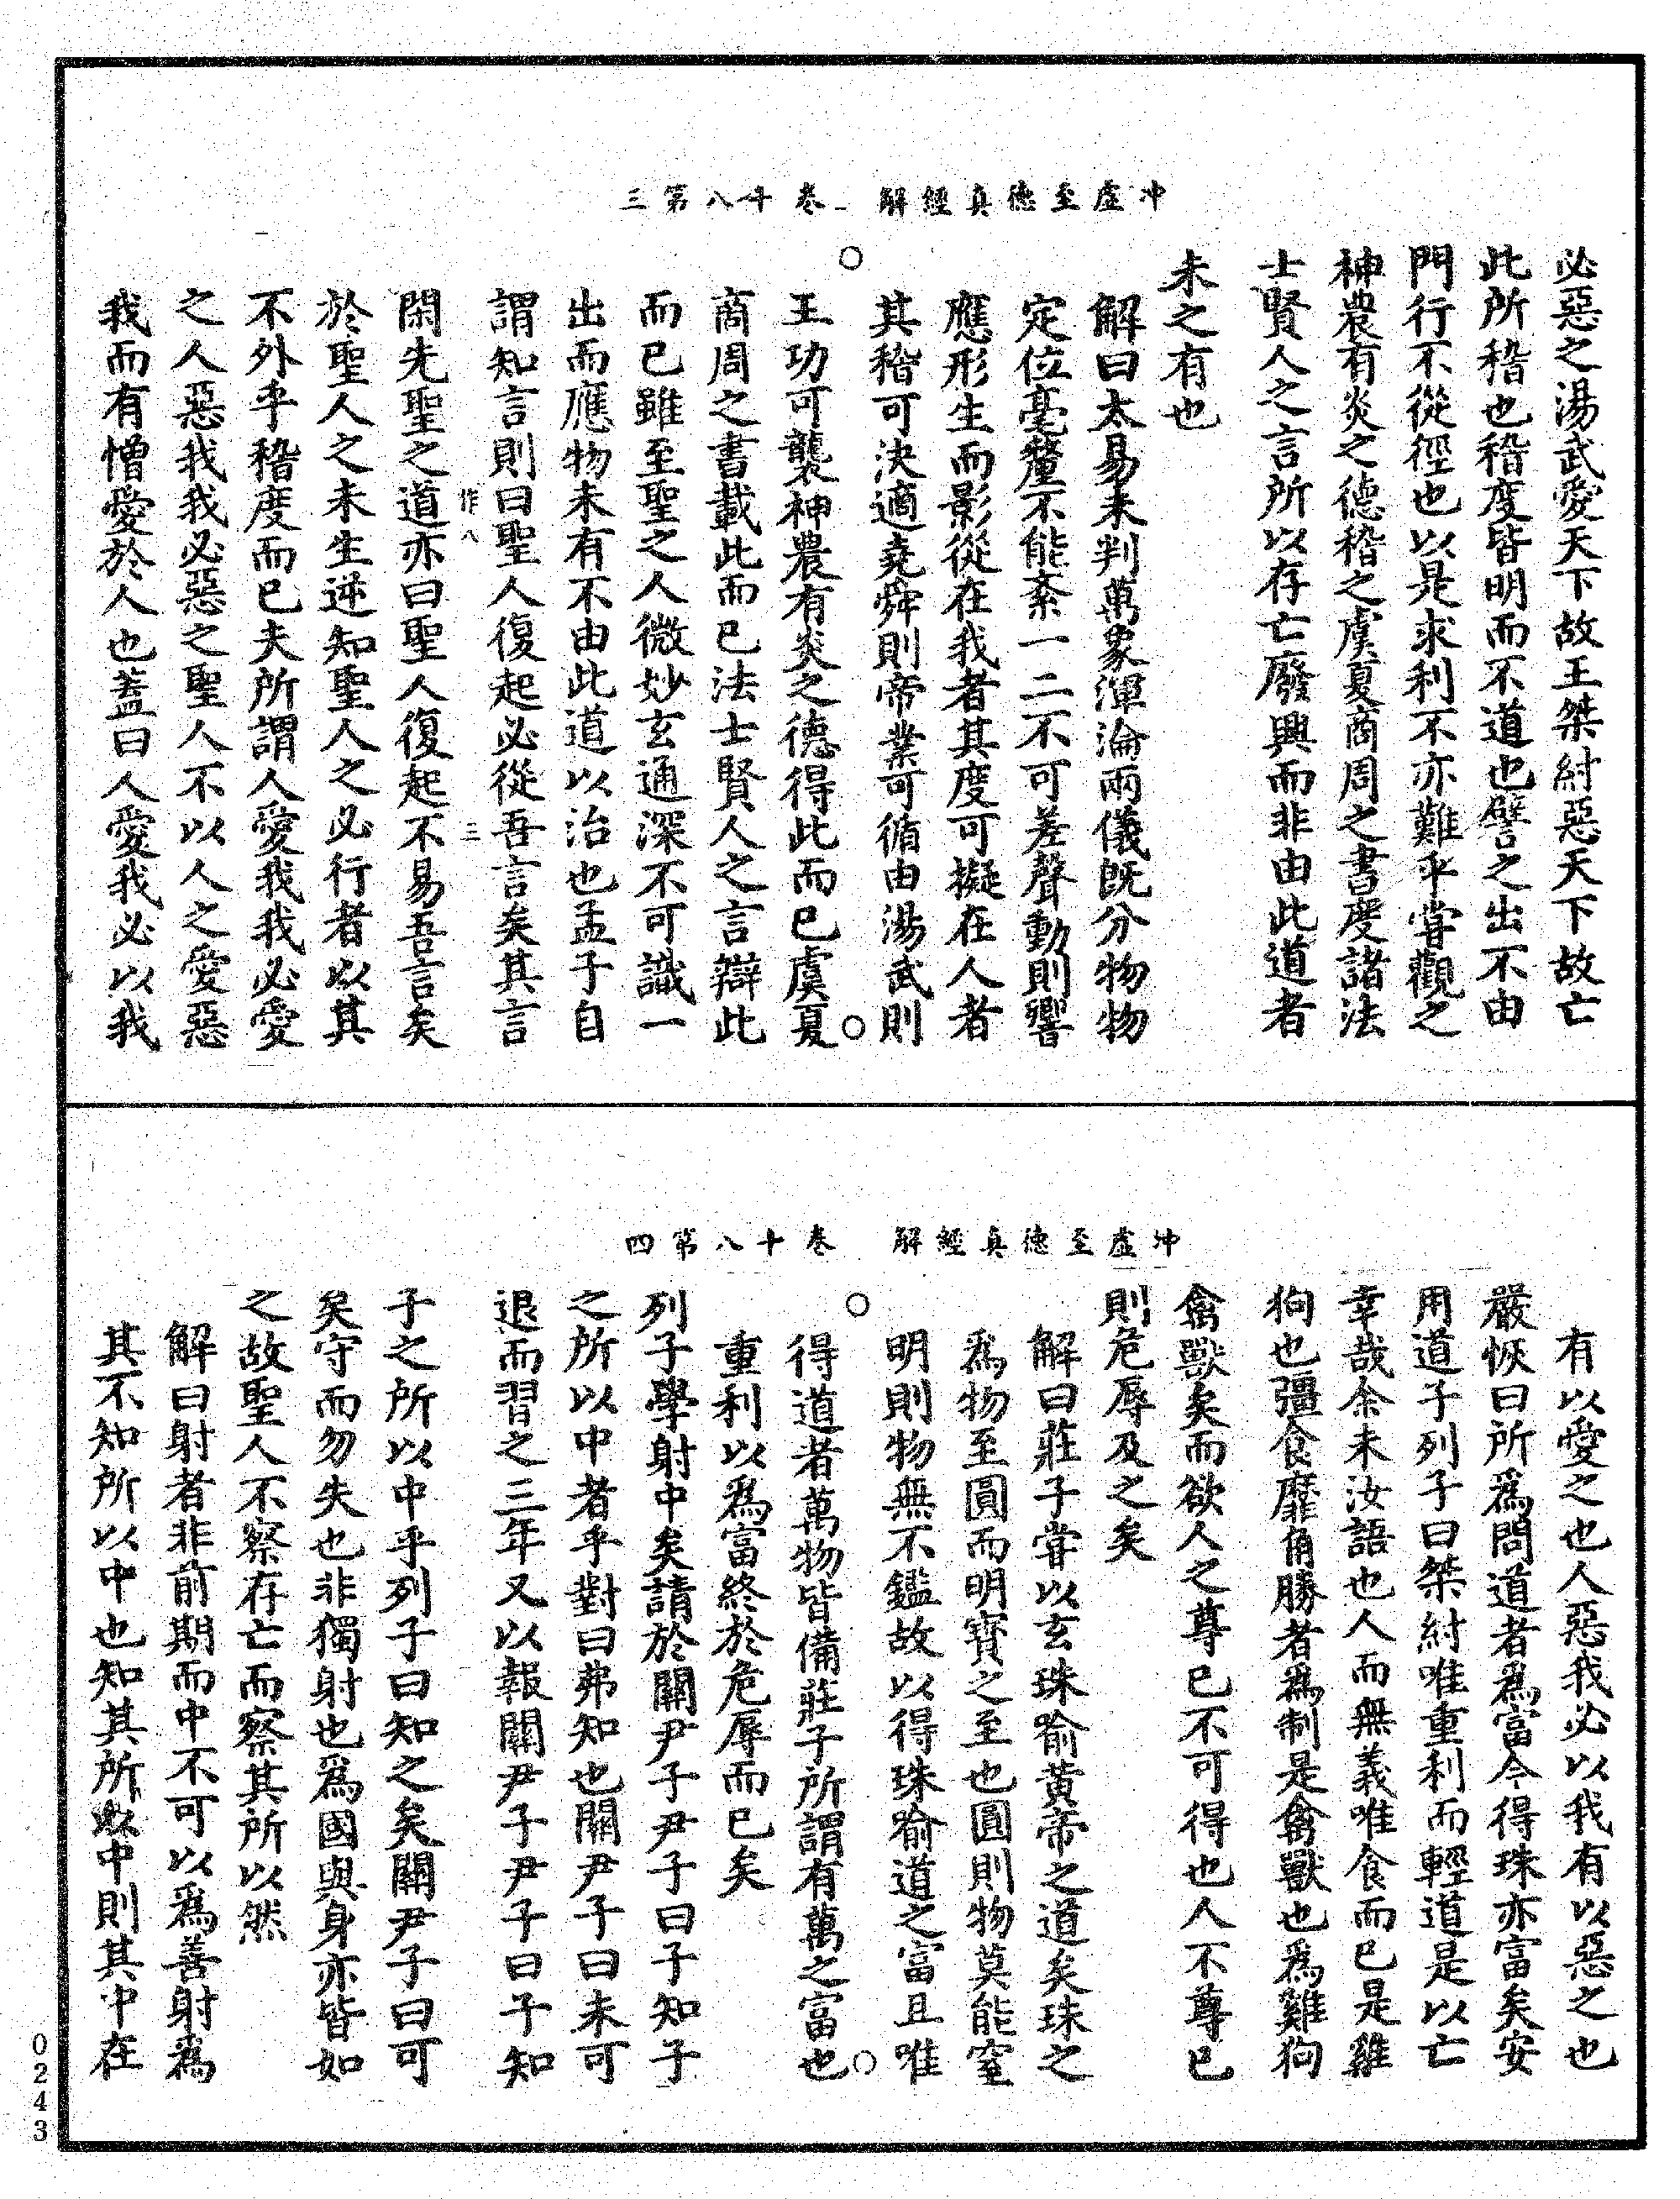 冲虛至德真經解　卷十八第三
必惡之湯武愛天下故王桀紂惡天下故亡
此所稽也稽度皆明而不道也譬之出不由
門行不從徑也以是求利不亦難乎嘗觀之
神農有炎之德稽之虞夏商周之書度諸法
士賢人之言所以存亡廢興而非由此道者
未之有也
解曰太易未判萬象渾淪兩儀既分物物
定位毫釐不能紊一二不可差聲動則響
應形生而影從在我者其度可擬在人者
其稽可決適堯舜則帝業可循由湯武則
王功可襲神農有炎之德得此而已虞夏
商周之書載此而已法士賢人之言辯此
而已雖至聖之人微妙玄通深不可識一
出而應物未有不由此道以治也孟子自
謂知言則曰聖人復起必從吾言矣其言
作八　三
閑先聖之道亦曰聖人復起不易吾言矣
於聖人之未生逆知聖人之必行者以其
不外乎稽度而已夫所謂人愛我我必愛
之人惡我我必惡之聖人不以人之愛惡
我而有憎愛於人也蓋曰人愛我必以我
冲虛至德真經解　卷十八第四
有以愛之也人惡我必以我有以惡之也
嚴恢曰所爲問道者爲富今得珠亦富矣安
用道子列子曰桀紂唯重利而輕道是以亡
幸哉余未汝語也人而無義唯食而已是雞
狗也彊食靡角勝者爲制是禽獸也爲雞狗
禽獸矣而欲人之尊已不可得也人不尊已
則危辱及之矣
解曰莊子嘗以玄珠喻黃帝之道矣珠之
爲物至圓而明寶之至也圓則物莫能窒
明則物無不鑑故以得珠喻道之富且唯
得道者萬物皆備莊子所謂有萬之富也
重利以爲富終於危辱而已矣
列子學射中矣請於關尹子尹子曰子知子
之所以中者乎對曰弗知也關尹子曰未可
退而習之三年又以報關尹子尹子曰子知
子之所以中乎列子曰知之矣關尹子曰可
矣守而勿失也非獨射也爲國與身亦皆如
之故聖人不察存亡而察其所以然
解曰射者非前期而中不可以爲善射爲
其不知所以中也知其所以中則其中在
0243